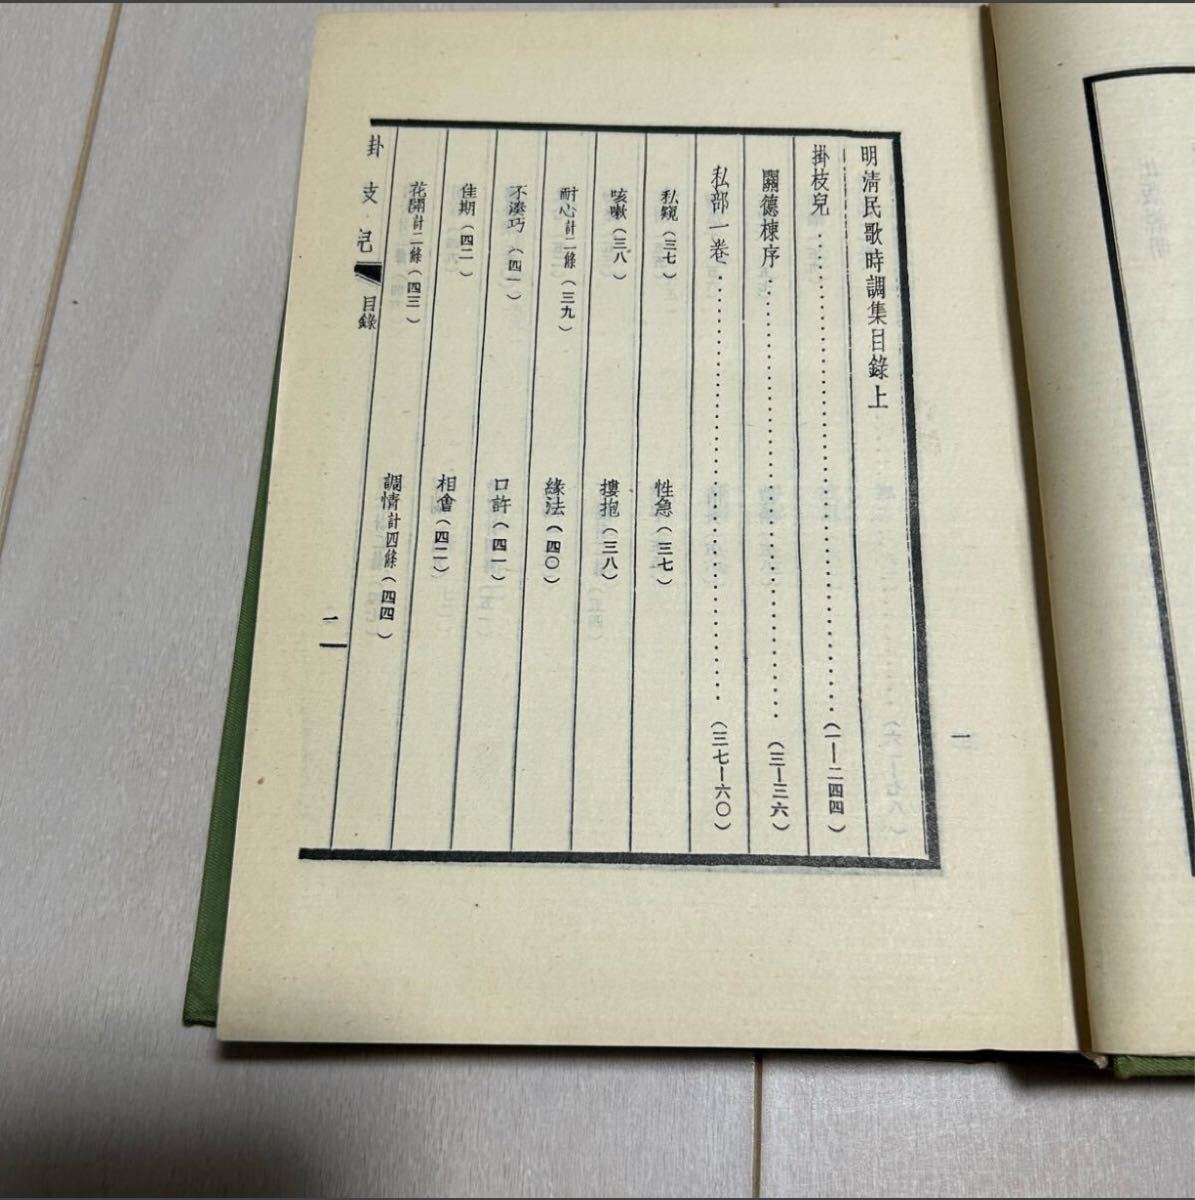 明清民歌時調集目錄上
掛枝兒……(一—二四四)
關德棟序……(三—三六)
私部一卷……(三七—六〇)
私窺(三七) 性急(三七)
咳嗽(三八) 摟抱(三八)
耐心計二條(三九) 緣法(四〇)
不湊巧(四一) 口許(四一)
佳期(四二) 相會(四二)
花開計二條(四三) 調情計四條(四四)
掛枝兒 目錄
一
一